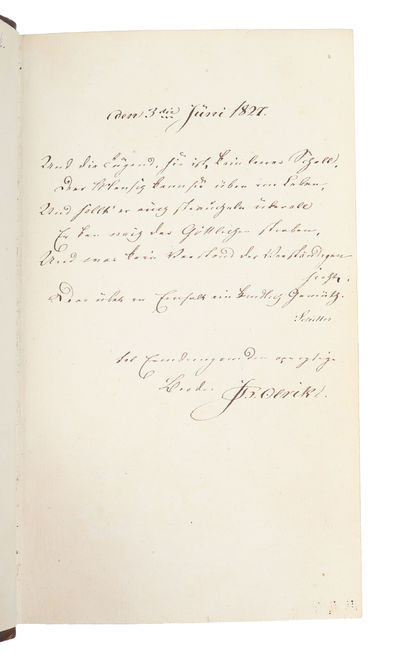 den 3 Juni 1827.
Und die Tugend, sie ist kein leerer Schall,
Der Mensch kann sie üben im Leben,
Und sollt er auch straucheln überall
Er kan nach der Göttlichen streben,
Und was kein Verstand der Verständigen
sieht,
Das übet in Einfalt ein kindlich Gemüth.
Schiller
Bruder